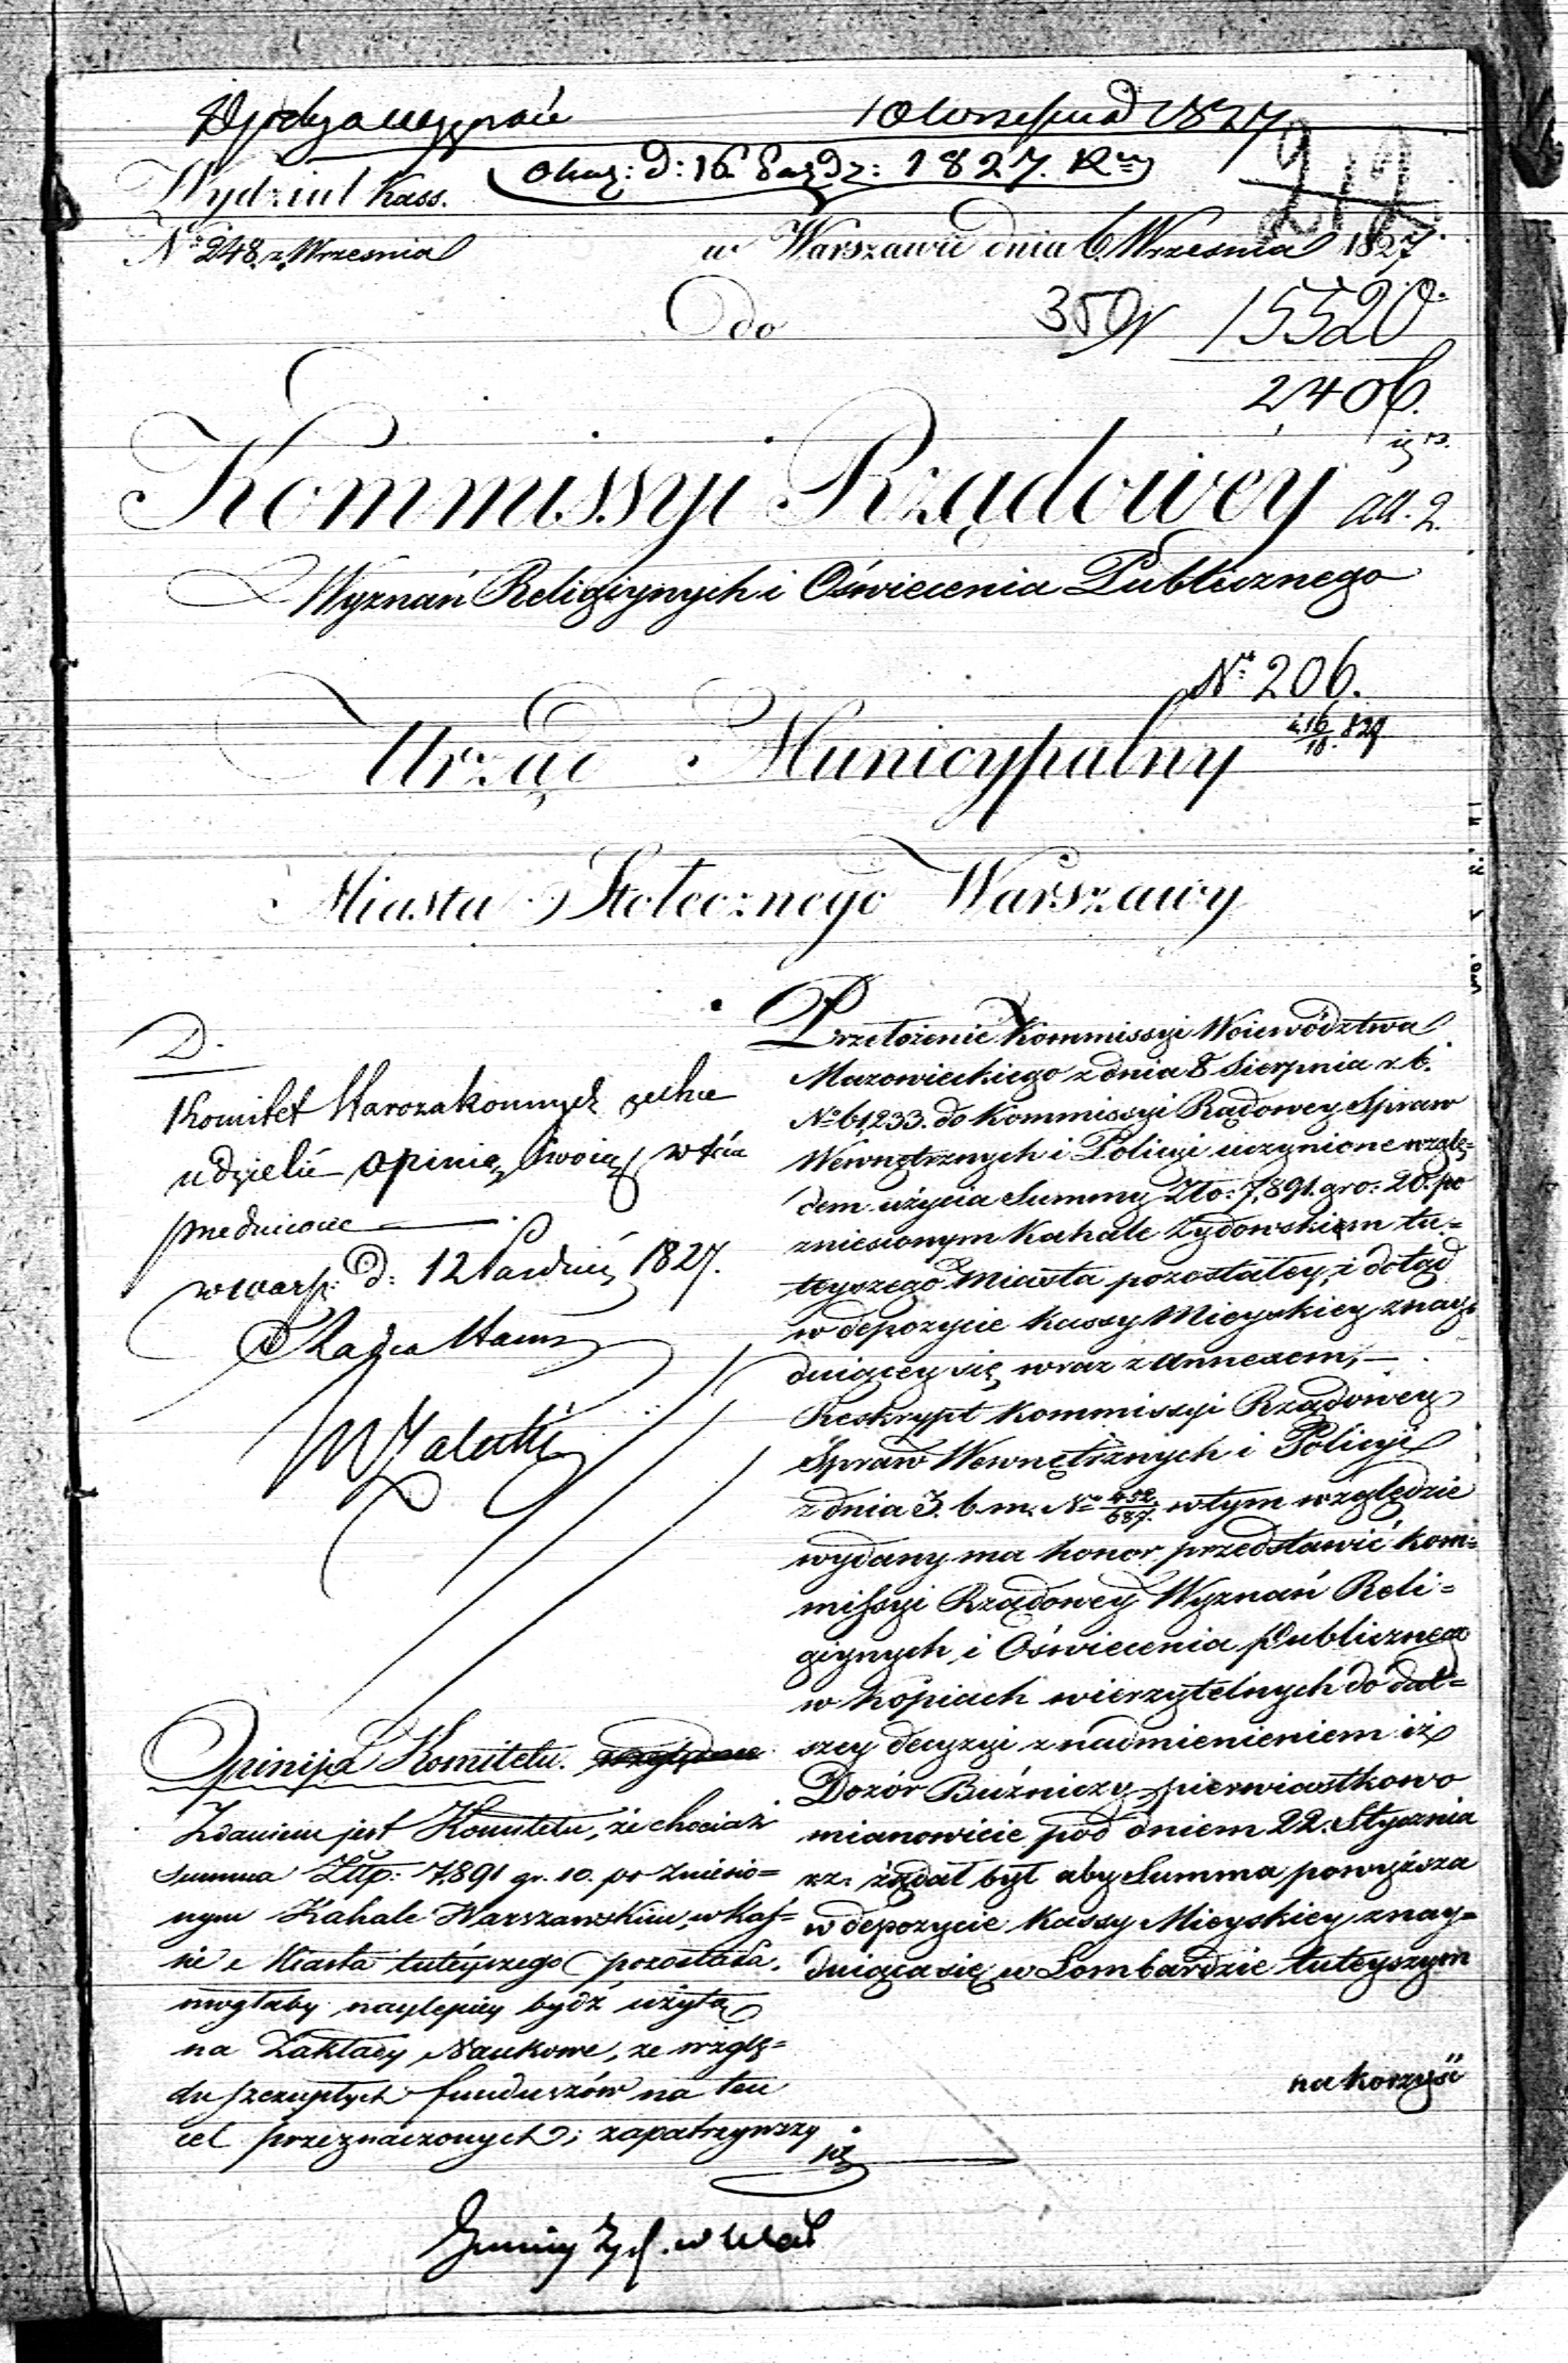 10 Września 1827
Okaz: d: 16 Paźdz: 1827. R
Wydział Kass.
No 248. z Wrzesnia
w Warszawie dnia 6 Wrzesnia 1827.
do
15520
2406.
Kommissyi Rządowey
all. 2.
Wyznań Religiynych i Oświecenia Publicznego
No 206.
Urząd Municypalny
Miasta Stołecznego Warszawy
D.
Komitet Starozakonnych zechce
udzielić opinię swoię w téia
przedmiocie
w Warsz: d: 12 1827.
Radca Stanu
Opinija Komitetu.
Zdaniem jest Komitetu, że chociaż
summa Złłp: 7,891 gr. 10. po zniesio=
nym Kahale Warszawskim, w Kas=
sie Miasta tuteyszego pozostała,
mogłaby naylepiey bydź użytą
na Zakłady Naukowe, ze wzglę=
du szczupłych funduszów na ten
cel przeznaczonych; zapatrzywszy
Przełożenie Kommissyi Woiewództwa
Mazowieckiego z dnia 8 Sierpnia r. b.
No 61,233. do Kommissyi Rządowey Spraw
Wewnętrznych i Policyi uczynione wzglę=
dem użycia Summy Zło: 7,891. gro: 20. po
zniesionym Kahale Żydowskiem tu=
teyszego Miasta pozostałey, i dotąd
w depozycie Kassy Mieyskiey znay=
duiącey się wraz z annexem, —
Reskrypt Kommissyi Rządowey
Spraw Wewnętrznych i Policyi
z dnia 3. b. m. No 452/687. w tym względzie
wydany ma honor przedstawić Kom=
missyi Rządowey Wyznań Reli=
giynych i Oświecenia Publicznego
w kopiach wierzytelnych do dal=
szey decyzyi z nadmienieniem iż
Dozór Bużniczy pierwiastkowo
mianowicie pod dniem 22. Stycznia
r. z. żądał był aby Summa powyższa
w depozycie Kassy Mieyskiey znay=
duiąca się w Lombardzie tuteyszym
na korzyść
Gminy Żyd. w